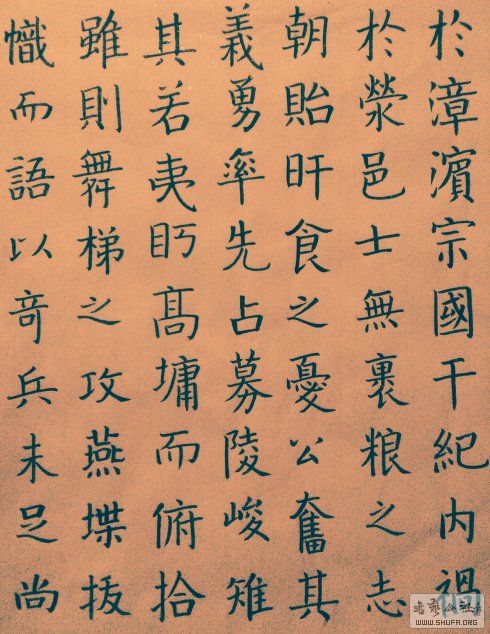 於漳濱宗國干紀内禍
於滎邑士無裹粮之志
朝貽旰食之憂公奮其
義勇率先占募陵峻雉
其若夷眄髙墉而俯拾
雖則舞梯之攻燕堞拔
幟而語以奇兵未足尚
WWW.SHUFA.ORG